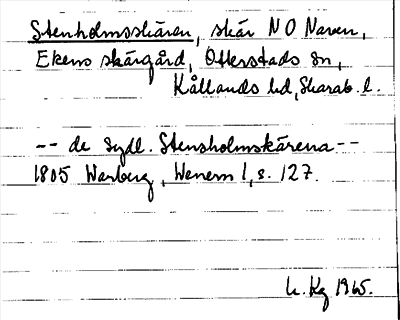 Stenholmsskären, skär N O Naven,
Ekens skärgård, Otterstads sn,
Kållands hd, Skarab. l.
-- de Sydl. Stensholmskärena --
1805 Warberg, Wenern 1, s. 127.
1965.